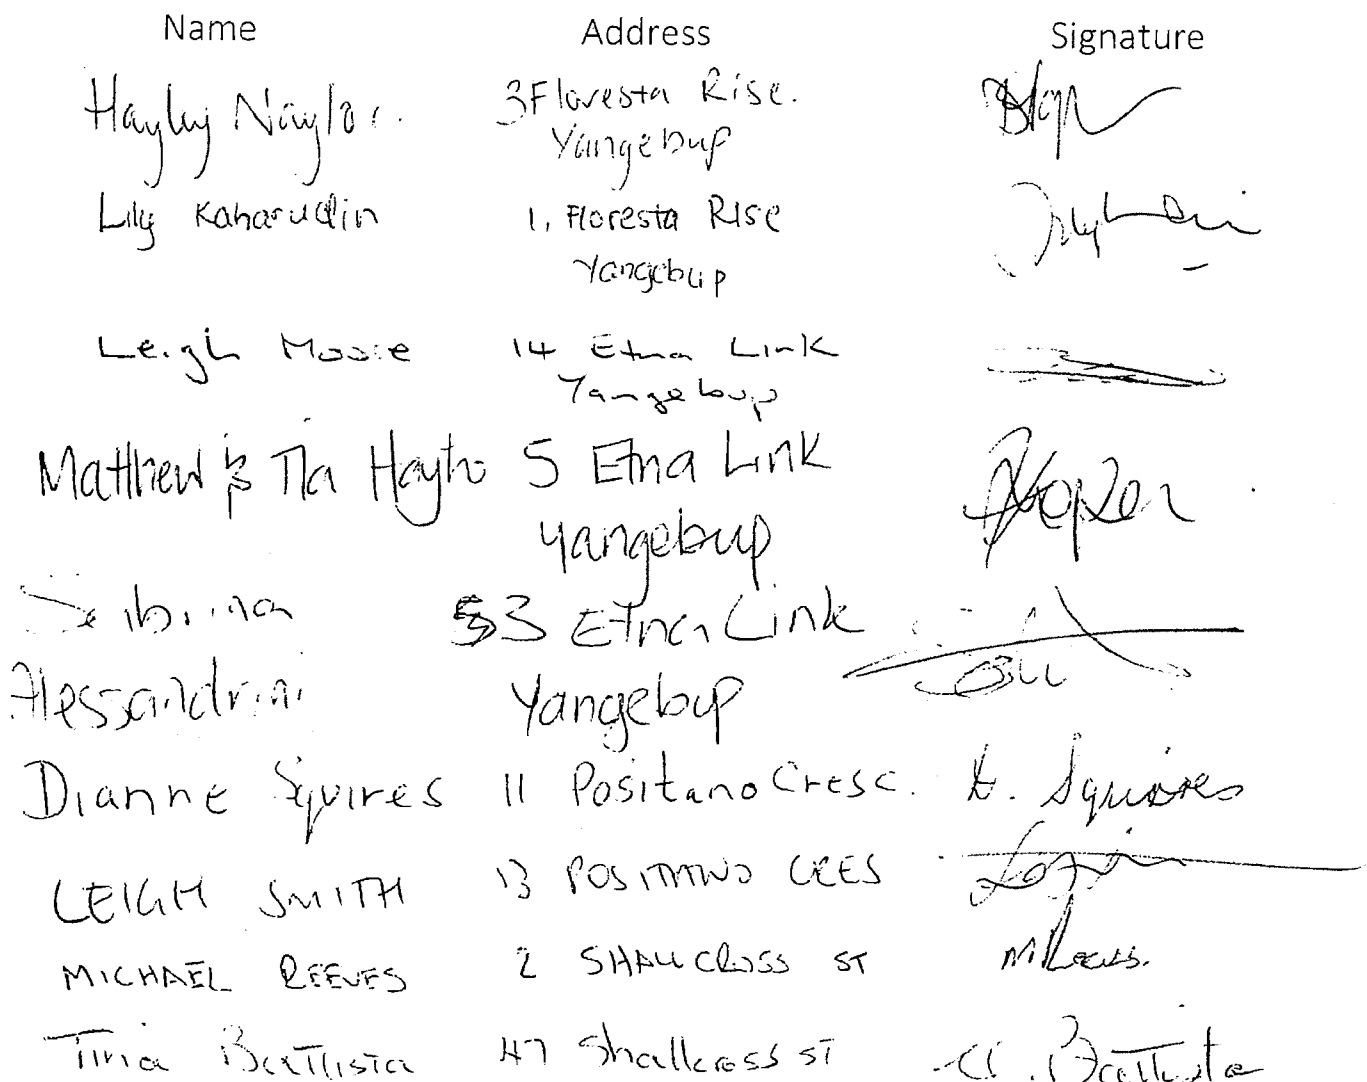 Name Address Signature
Hayley Naylor. 3 Floresta Rise.
Yangebup
Lily Kaharudin 1, Floresta Rise
Yangebup
Leigh Moore 14 Etna Link
Yangebup
Matthew & Tia Hayto 5 Etna Link
Yangebup
53 Etna Link
Alessandrini Yangebup
Dianne Squires 11 Positano Cresc. D. Squires
LEIGH SMITH 13 POSITANO CRES
MICHAEL REEVES 2 SHALLCROSS ST M Reeves.
Tina Battista 47 Shallcross ST Battista